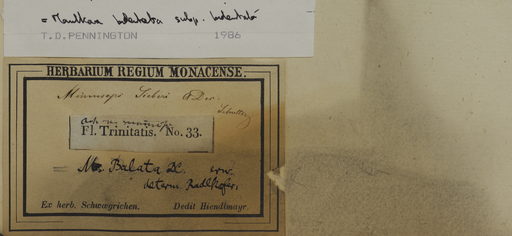 = Manilkara bidentata subsp. bidentata
T.D. PENNINGTON 1986
HERBARIUM REGIUM MONACENSE.
Mimusops Sieberi A Dec.
Fl. Trinitatis. No. 33.
= M. Balata DC.
determ. Radlkofer.
Ex herb. Schwægrichen. Dedit Hiendlmayr.